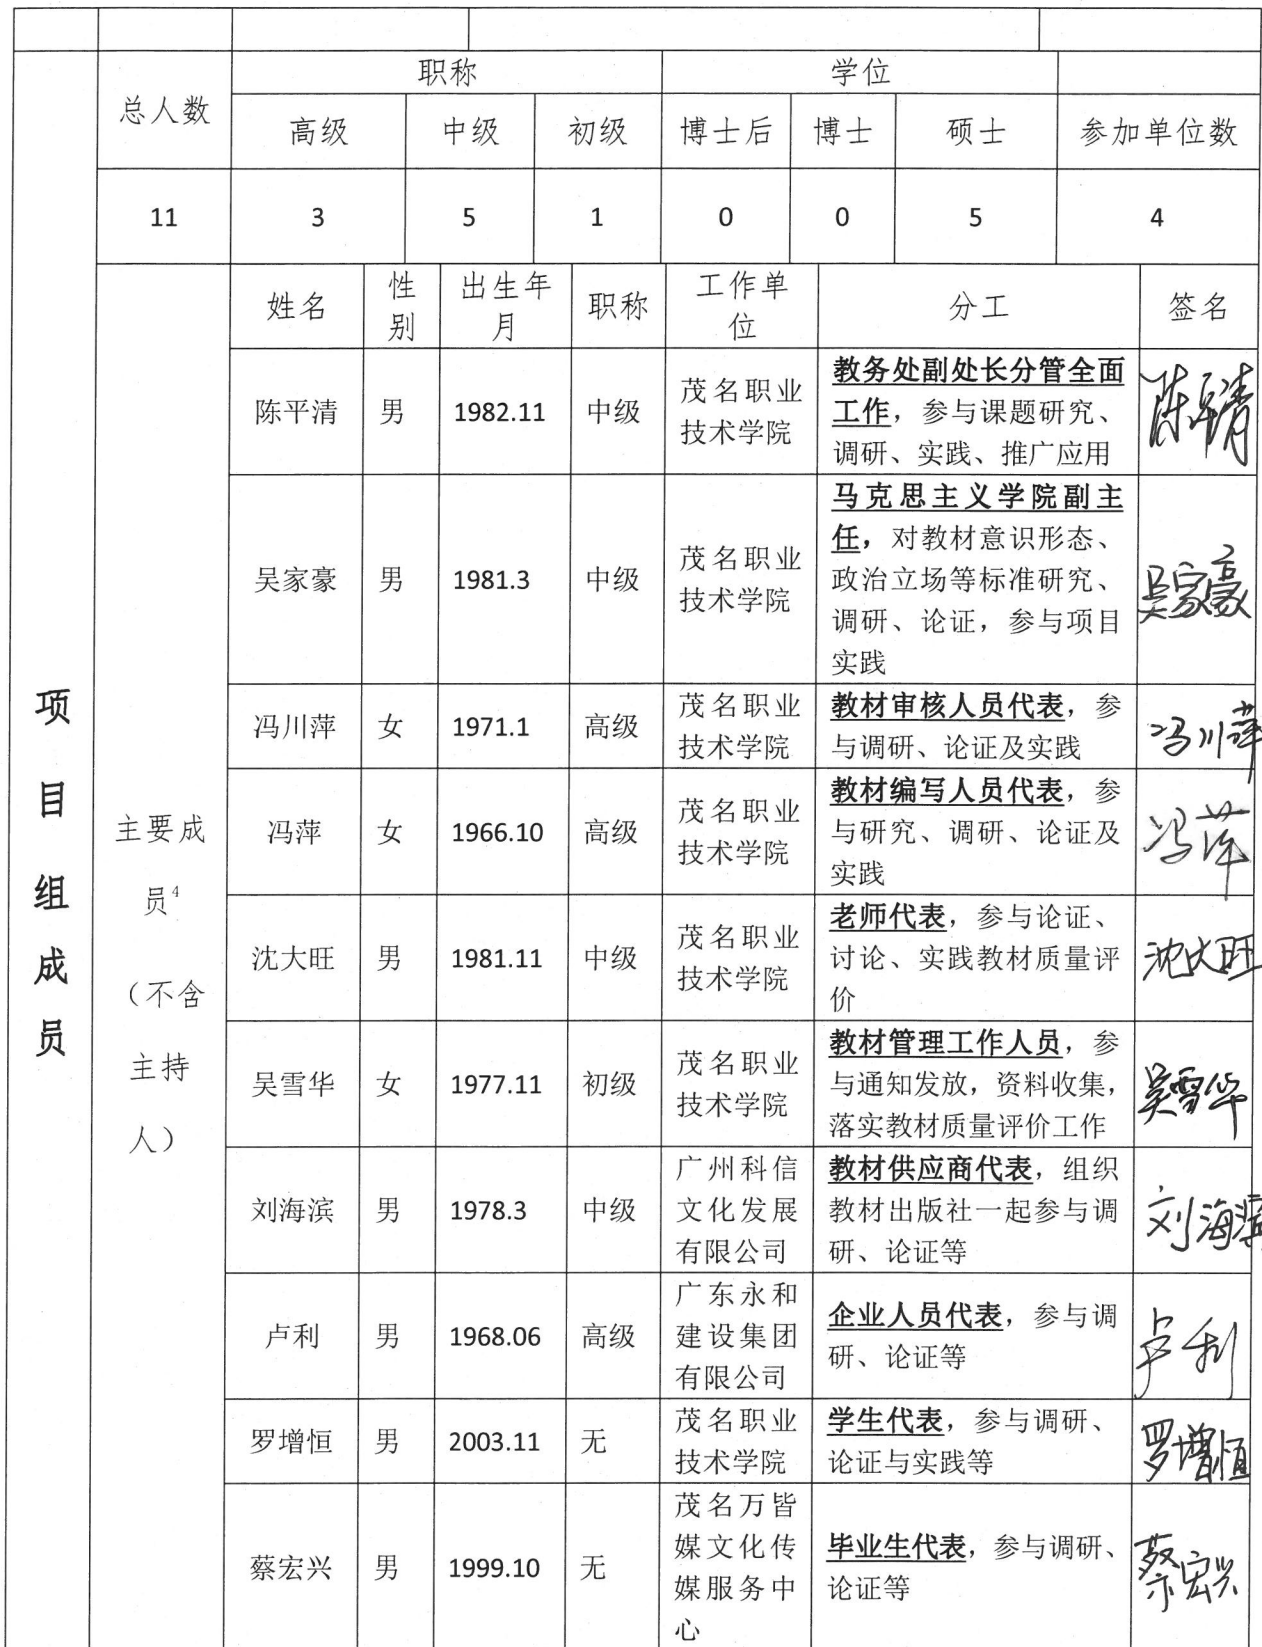 职称
学位
总人数
高级
中级
初级
博士后
博士
硕士
参加单位数
11
3
5
1
0
0
5
4
项
目
组
成
员
主要成
员4
（不含
主持
人）
姓名
性
别
出生年
月
职称
工作单
位
分工
签名
陈平清
男
1982.11
中级
茂名职业
技术学院
教务处副处长分管全面
工作，参与课题研究、
调研、实践、推广应用
陈平清
吴家豪
男
1981.3
中级
茂名职业
技术学院
马克思主义学院副主
任，对教材意识形态、
政治立场等标准研究、
调研、论证，参与项目
实践
吴家豪
冯川萍
女
1971.1
高级
茂名职业
技术学院
教材审核人员代表，参
与调研、论证及实践
冯川萍
冯萍
女
1966.10
高级
茂名职业
技术学院
教材编写人员代表，参
与研究、调研、论证及
实践
冯萍
沈大旺
男
1981.11
中级
茂名职业
技术学院
老师代表，参与论证、
讨论、实践教材质量评
价
沈大旺
吴雪华
女
1977.11
初级
茂名职业
技术学院
教材管理工作人员，参
与通知发放，资料收集，
落实教材质量评价工作
吴雪华
刘海滨
男
1978.3
中级
广州科信
文化发展
有限公司
教材供应商代表，组织
教材出版社一起参与调
研、论证等
刘海滨
卢利
男
1968.06
高级
广东永和
建设集团
有限公司
企业人员代表，参与调
研、论证等
卢利
罗增恒
男
2003.11
无
茂名职业
技术学院
学生代表，参与调研、
论证与实践等
罗增恒
蔡宏兴
男
1999.10
无
茂名万皆
媒文化传
媒服务中
心
毕业生代表，参与调研、
论证等
蔡宏兴